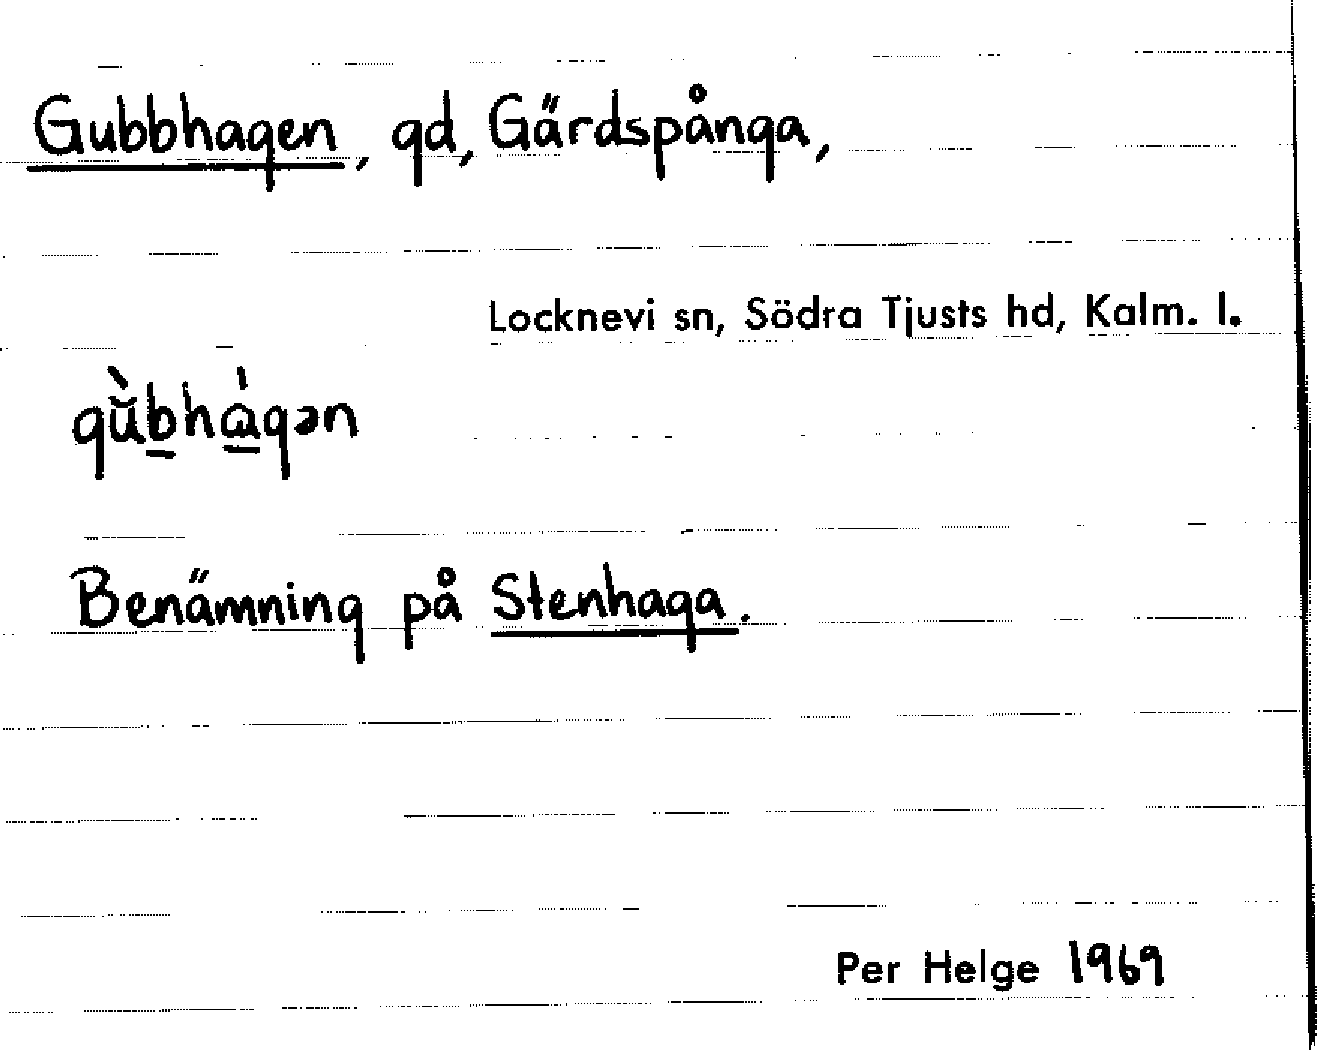 Gubbhagen, gd, Gärdspånga,
Locknevi sn, Södra Tjusts hd, Kalm. l.
gù̆b̲hɑ̲́gən
Benämning på Stenhaga.
Per Helge 1969